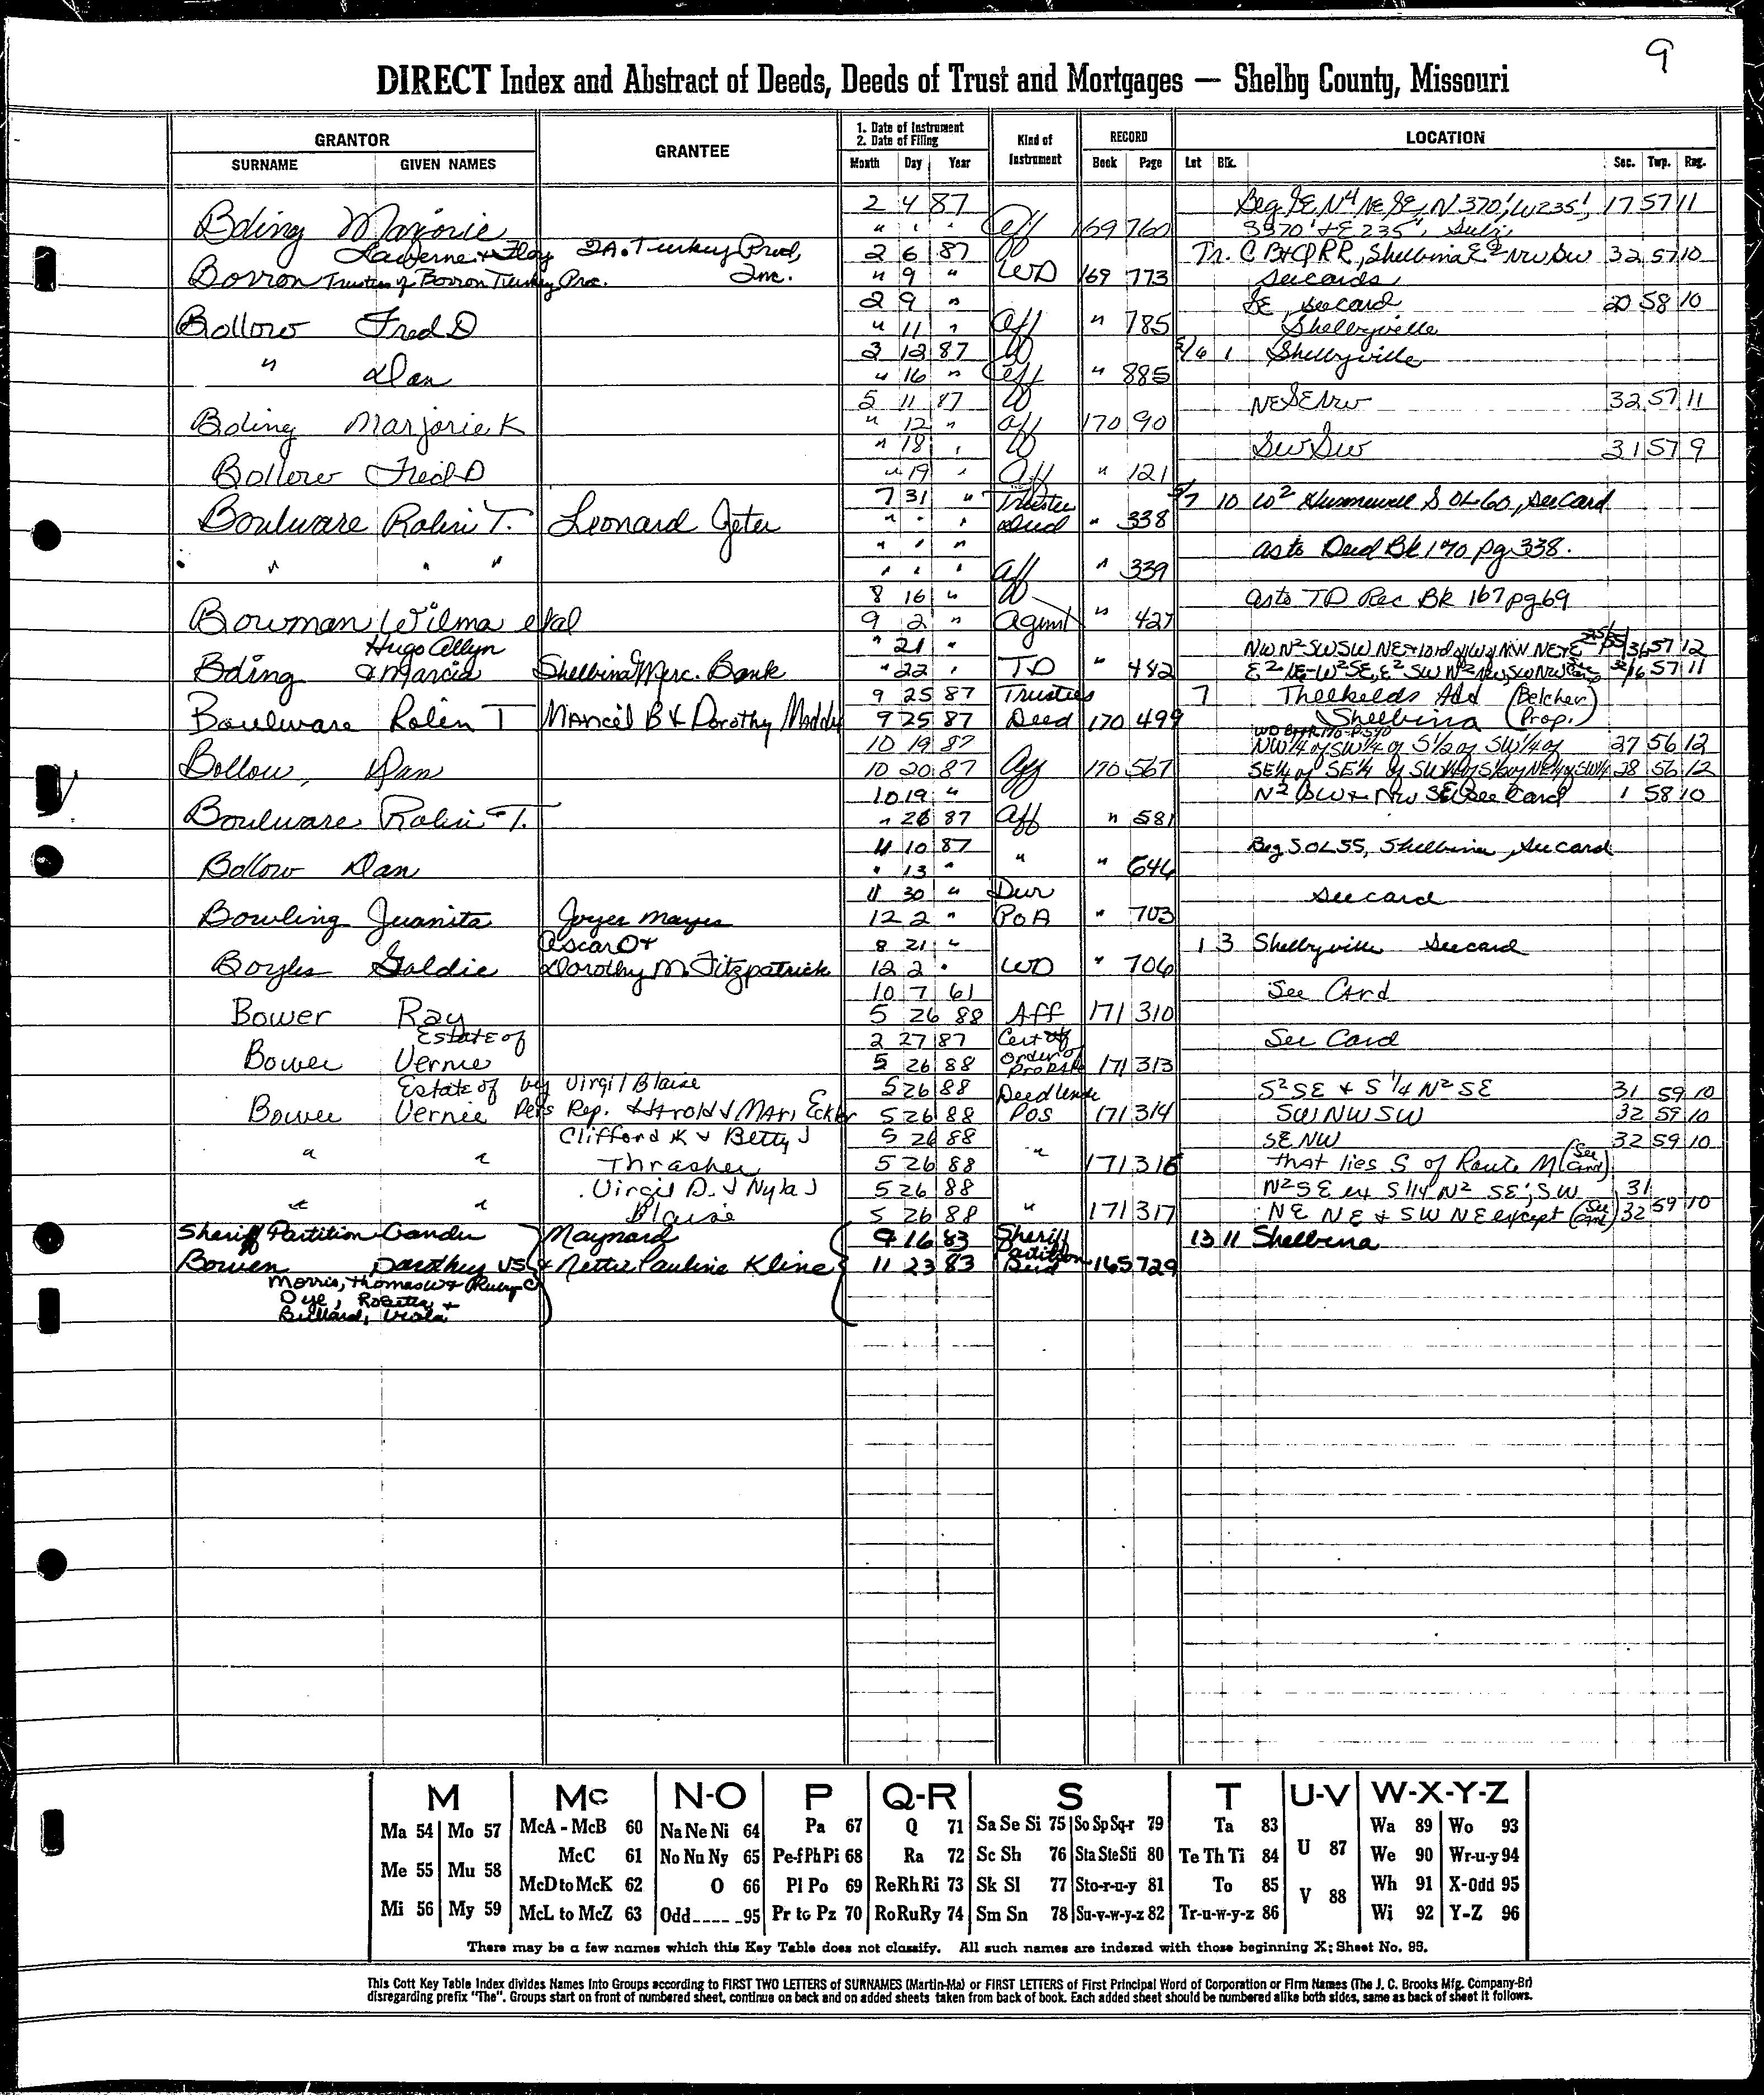 9
DIRECT Index and Abstract of Deeds, Deeds of Trust and Mortgages — Shelby County, Missouri
GRANTOR GRANTEE 1. Date of Instrument 2. Date of Filing Kind of Instrument RECORD LOCATION
SURNAME GIVEN NAMES Month Day Year Book Page Lot Blk. Sec. Twp. Rng.
2 4 87 Beg SE N4 NE SE, N 370', W 235', 17 57 11
Boling Marjorie " " " Aff 169 760 S 370' & E 235',
Laverne & Floy I.A. Turkey Prod, 2 6 87 Tr. C B & Q RR, Shelbina E2 NW SW 32 57 10
Borron Trustees of Borron Turkey Proc. Inc. " 9 " WD 169 773 see cards
2 9 " SE, see card 20 58 10
Bollow Fred D " 11 " Aff " 785 Shelbyville
3 12 87 5/6 1 Shelbyville
" Dan " 16 " Aff " 885
5 11 87 NE SE NW 32 57 11
Boling Marjorie K " 12 " Aff 170 90
" 18 " SW SW 31 57 9
Bollow Fred D " 19 " Aff " 121
7 31 " Trustee 5/7 10 W2 Hunnewell S OL 60, see card
Boulware Robin T. Leonard Jeter " " " Deed " 338
" " " as to Deed Bk 170 pg 338.
" " " " " " Aff " 339
8 16 " as to TD Rec Bk 167 pg 69
Bowman Wilma etal 9 2 " Agmt " 427
Hugo Allyn " 21 " NW N2 SW SW NE 36 57 12
Boling & Marcia Shelbina Merc. Bank " 22 " TD " 482 57 11
9 25 87 Trustees 7 Threlkelds Add (Belcher
Boulware Robin T Mancil B & Dorothy Maddy 9 25 87 Deed 170 499 Shelbina Prop.)
10 19 87 NW 1/4 of SW 1/4 of S 1/2 of SW 1/4 of 27 56 12
Bollow, Dan 10 20 87 Aff 170 567 SE 1/4 of SE 1/4 of SW 1/4 of S 1/2 of NE 1/4 of SW 1/4 28 56 12
10 19 " N2 SW & NW SE see card 1 58 10
Boulware Robin T. " 26 87 Aff " 581
11 10 87 Beg S OL 55, Shelbina, see card
Bollow Dan " 13 " " " 646
11 30 " Dur see card
Bowling Juanita Joyce Mayes 12 2 " PoA " 703
Oscar O & 8 21 " 1 3 Shelbyville see card
Boyles Goldie Dorothy M. Fitzpatrick 12 2 " WD " 706
10 7 61 See Card
Bower Ray 5 26 88 Aff 171 310
Estate of 2 27 87 Cert of See Card
Bower Vernie 5 26 88 order of probate 171 313
Estate of by Virgil Blaise 5 26 88 Deed Unde S2 SE & S 1/4 N2 SE 31 59 10
Bower Vernie Pers Rep. Harold & Mari Ecker 5 26 88 Pos 171 314 SW NW SW 32 59 10
Clifford K & Betty J 5 26 88 SE NW 32 59 10
" " Thrasher 5 26 88 " 171 316 that lies S of Route M (See Card)
Virgil D. & Nyla J 5 26 88 N2 SE ex S 1/4 N2 SE; SW 31
" " Blaise 5 26 88 " 171 317 NE NE & SW NE except (See Card) 32 59 10
Sheriff Partition Gander Maynard 9 16 83 Sheriff 13 11 Shelbina
Bowen Dorothy VS & Nettie Pauline Kline 11 23 83 Partition Deed 165 729
Morris, Thomas W & Ruby C
Dye, Rosetta &
Billiard, Viola
M Mc N-O P Q-R S T U-V W-X-Y-Z
Ma 54 Mo 57 McA - McB 60 Na Ne Ni 64 Pa 67 Q 71 Sa Se Si 75 So Sp Sq-r 79 Ta 83 U 87 Wa 89 Wo 93
Me 55 Mu 58 McC 61 No Nu Ny 65 Pe-f Ph Pi 68 Ra 72 Sc Sh 76 Sta Ste Sti 80 Te Th Ti 84 We 90 Wr-u-y 94
McD to McK 62 O 66 Pl Po 69 Re Rh Ri 73 Sk Sl 77 Sto-r-u-y 81 To 85 V 88 Wh 91 X-Odd 95
Mi 56 My 59 McL to McZ 63 Odd 95 Pr to Pz 70 Ro Ru Ry 74 Sm Sn 78 Su-v-w-y-z 82 Tr-u-w-y-z 86 Wi 92 Y-Z 96
There may be a few names which this Key Table does not classify. All such names are indexed with those beginning X; Sheet No. 95.
This Cott Key Table Index divides Names Into Groups according to FIRST TWO LETTERS of SURNAMES (Martin-Ma) or FIRST LETTERS of First Principal Word of Corporation or Firm Names (The J. C. Brooks Mfg. Company-Br)
disregarding prefix "The". Groups start on front of numbered sheet, continue on back and on added sheets taken from back of book. Each added sheet should be numbered alike both sides, same as back of sheet it follows.